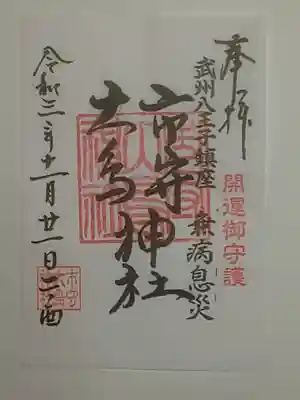 奉拝
開運御守護
武州八王子鎮座 無病息災
市守
大鳥神社
令和三年十一月廿一日二の酉